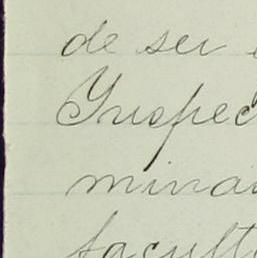 de ser
Inspec
minan
facult